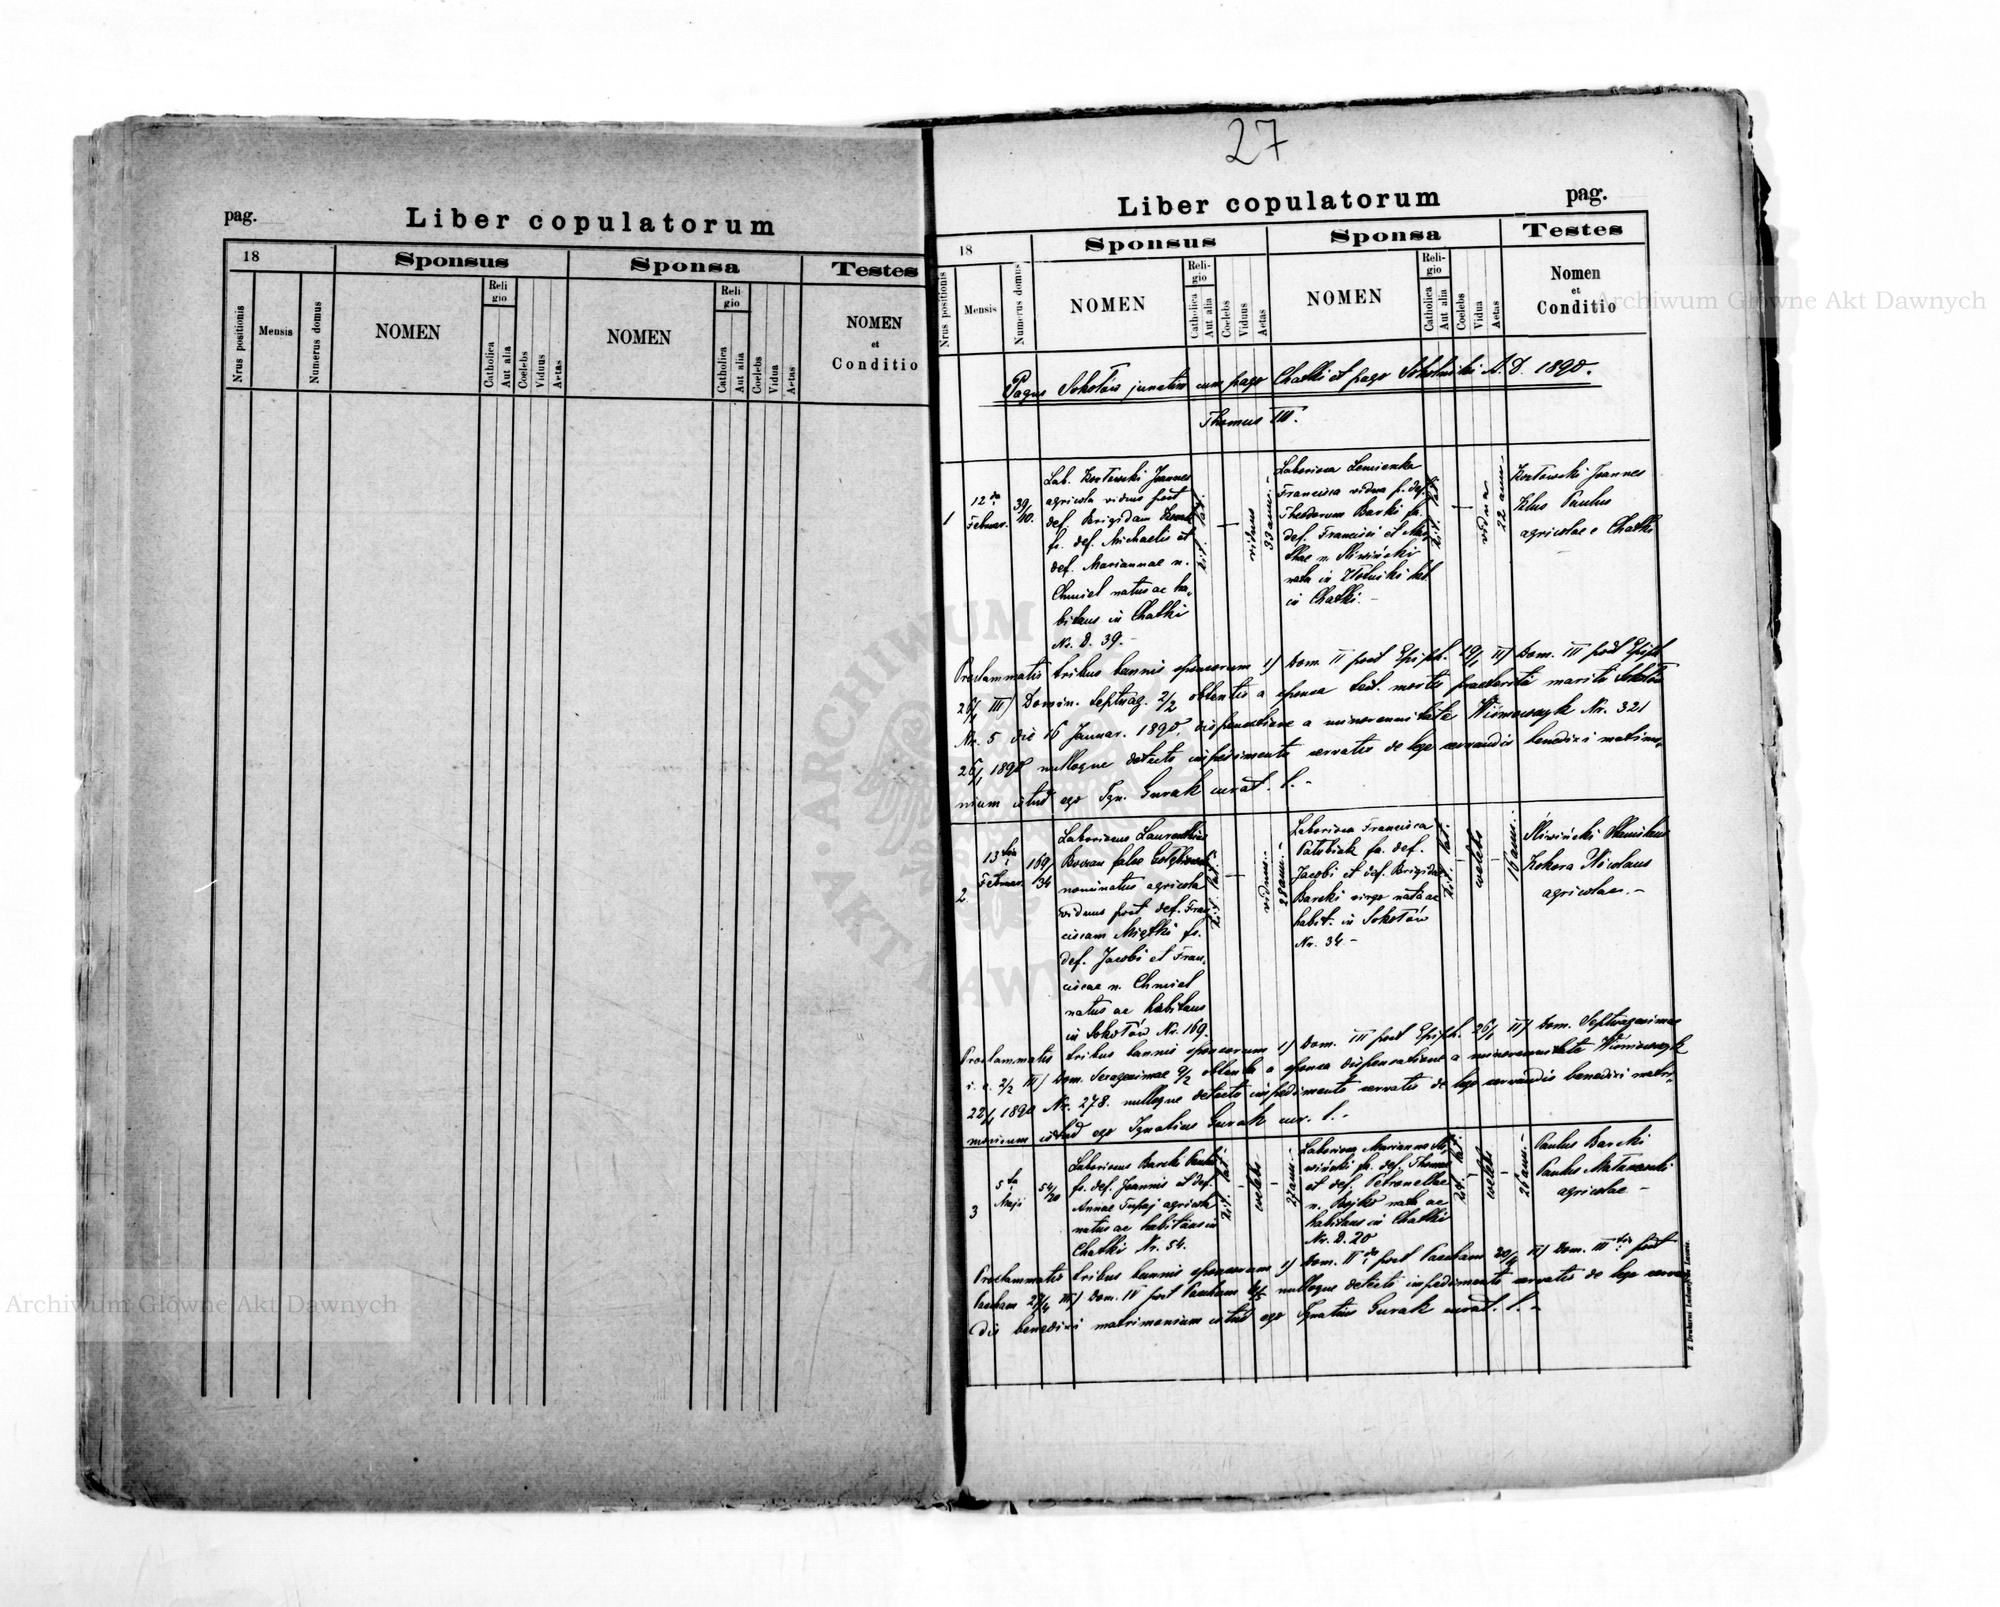 pag.
Liber copulatorum
18
Sponsus
Sponsa
Testes
Nrus positionis
Mensis
Numerus domus
NOMEN
Religio
Catholica
Aut alia
Coelebs
Viduus
Aetas
NOMEN
Religio
Catholica
Aut alia
Coelebs
Vidua
Aetas
NOMEN
et
Conditio
27
Liber copulatorum
pag.
18
Sponsus
Sponsa
Testes
Nrus positionis
Mensis
Numerus domus
NOMEN
Religio
Catholica
Aut alia
Coelebs
Viduus
Aetas
NOMEN
Religio
Catholica
Aut alia
Coelebs
Vidua
Aetas
Nomen
et
Conditio
Pagus Sokołów junctim cum pago Chatki et pago Sokolniki A. D. 1890.
Thomus III.
1
12da
Februar.
39/40.
Lab. Joannes
agricola viduus post
def. Brigidam
fs. def. Michaelis et
def. Mariannae n.
Chmiel natus ac ha-
bitans in Chatki
Nr. D. 39.-
rit. lat.
viduus
33 ann.-
Laboriosa
Francisca vidua p. def.
Theodorum Barski fa.
def. Francisci et
n. Śliwiński
nata in Złotniki hab.
in Chatki.-
rit. lat.
vidua
22 ann.-
Joannes
Paulus
agricolae e Chatki
Proclammatis tribus bannis sponsorum I) Dom. II post Epiph. 19/1 II) Dom. III post Epiph
26/1 III) Domin. Septuag. 2/2 obtentis a sponsa test. mortis mariti Sokołów
Nr. 5 die 16 Januar. 1890, dispensatione a minorennitate Wiśniowczyk Nr. 321
26/1 1890 nulloque detecto impedimento servatis de lege servandis benedixi matrimo-
nium istud ego Ign. Gurak curat. l.-
2
13tia
Februar.
169/134
Laboriosus Laurentius
false
nominatus agricola
viduus post def. Fran-
ciscam fs.
def. Jacobi et Fran-
ciscae n. Chmiel
natus ac habitans
in Sokołów Nr. 169.
rit. lat.
viduus
28 ann.-
Laboriosa Francisca
fa. def.
Jacobi et def. Brigidae
Barski virgo nata ac
habit. in Sokołów
Nr. 34.-
rit. lat.
coelebs
ann.
Śliwiński Stanislaus
Nicolaus
agricolae.-
Proclammatis tribus bannis sponsorum I) Dom. III post Epiph. 26/1 II) Dom. Septuagesimae
i. e. 2/2 III) Dom. Sexagesimae 9/2 obtenta a sponsa dispensatione a minorennitate Wiśniowczyk
22/1 1890 Nr. 278. nulloque detecto impedimento servatis de lege servandis benedixi matri-
monium istud ego Ignatius Gurak cur. l.-
3
5ta
Maji
54/20
Laboriosus Barski Paulus
fs. def. Joannis et def.
Annae agricola
natus ac habitans in
Chatki Nr. 54.
rit. lat.
coelebs
27 ann.-
Laboriosa Marianna Śli-
wiński fa. def. Thomae
et def. Petronellae
n. nata ac
habitans in Chatki
Nr. D. 20
rit. lat.
coelebs
26 ann.-
Paulus Barski
Paulus
agricolae -
Proclammatis tribus bannis sponsorum I) Dom. IIda post Pascham 20/4 II) Dom. IIItia post
Pascham 27/4 III) Dom. IV post Pascham 4/5 nulloque detecto impedimento servatis de lege servan-
dis benedixi matrimonium istud ego Ignatius Gurak curat. l.-
Archiwum Główne Akt Dawnych
Archiwum Główne Akt Dawnych
ARCHIWUM
AKT DAWNYCH